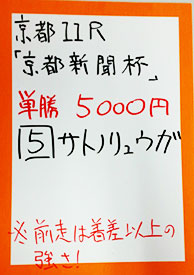 京都11R
「京都新聞杯」
単勝 5000円
5 サトノリュウガ
※前走は着差以上の
強さ!